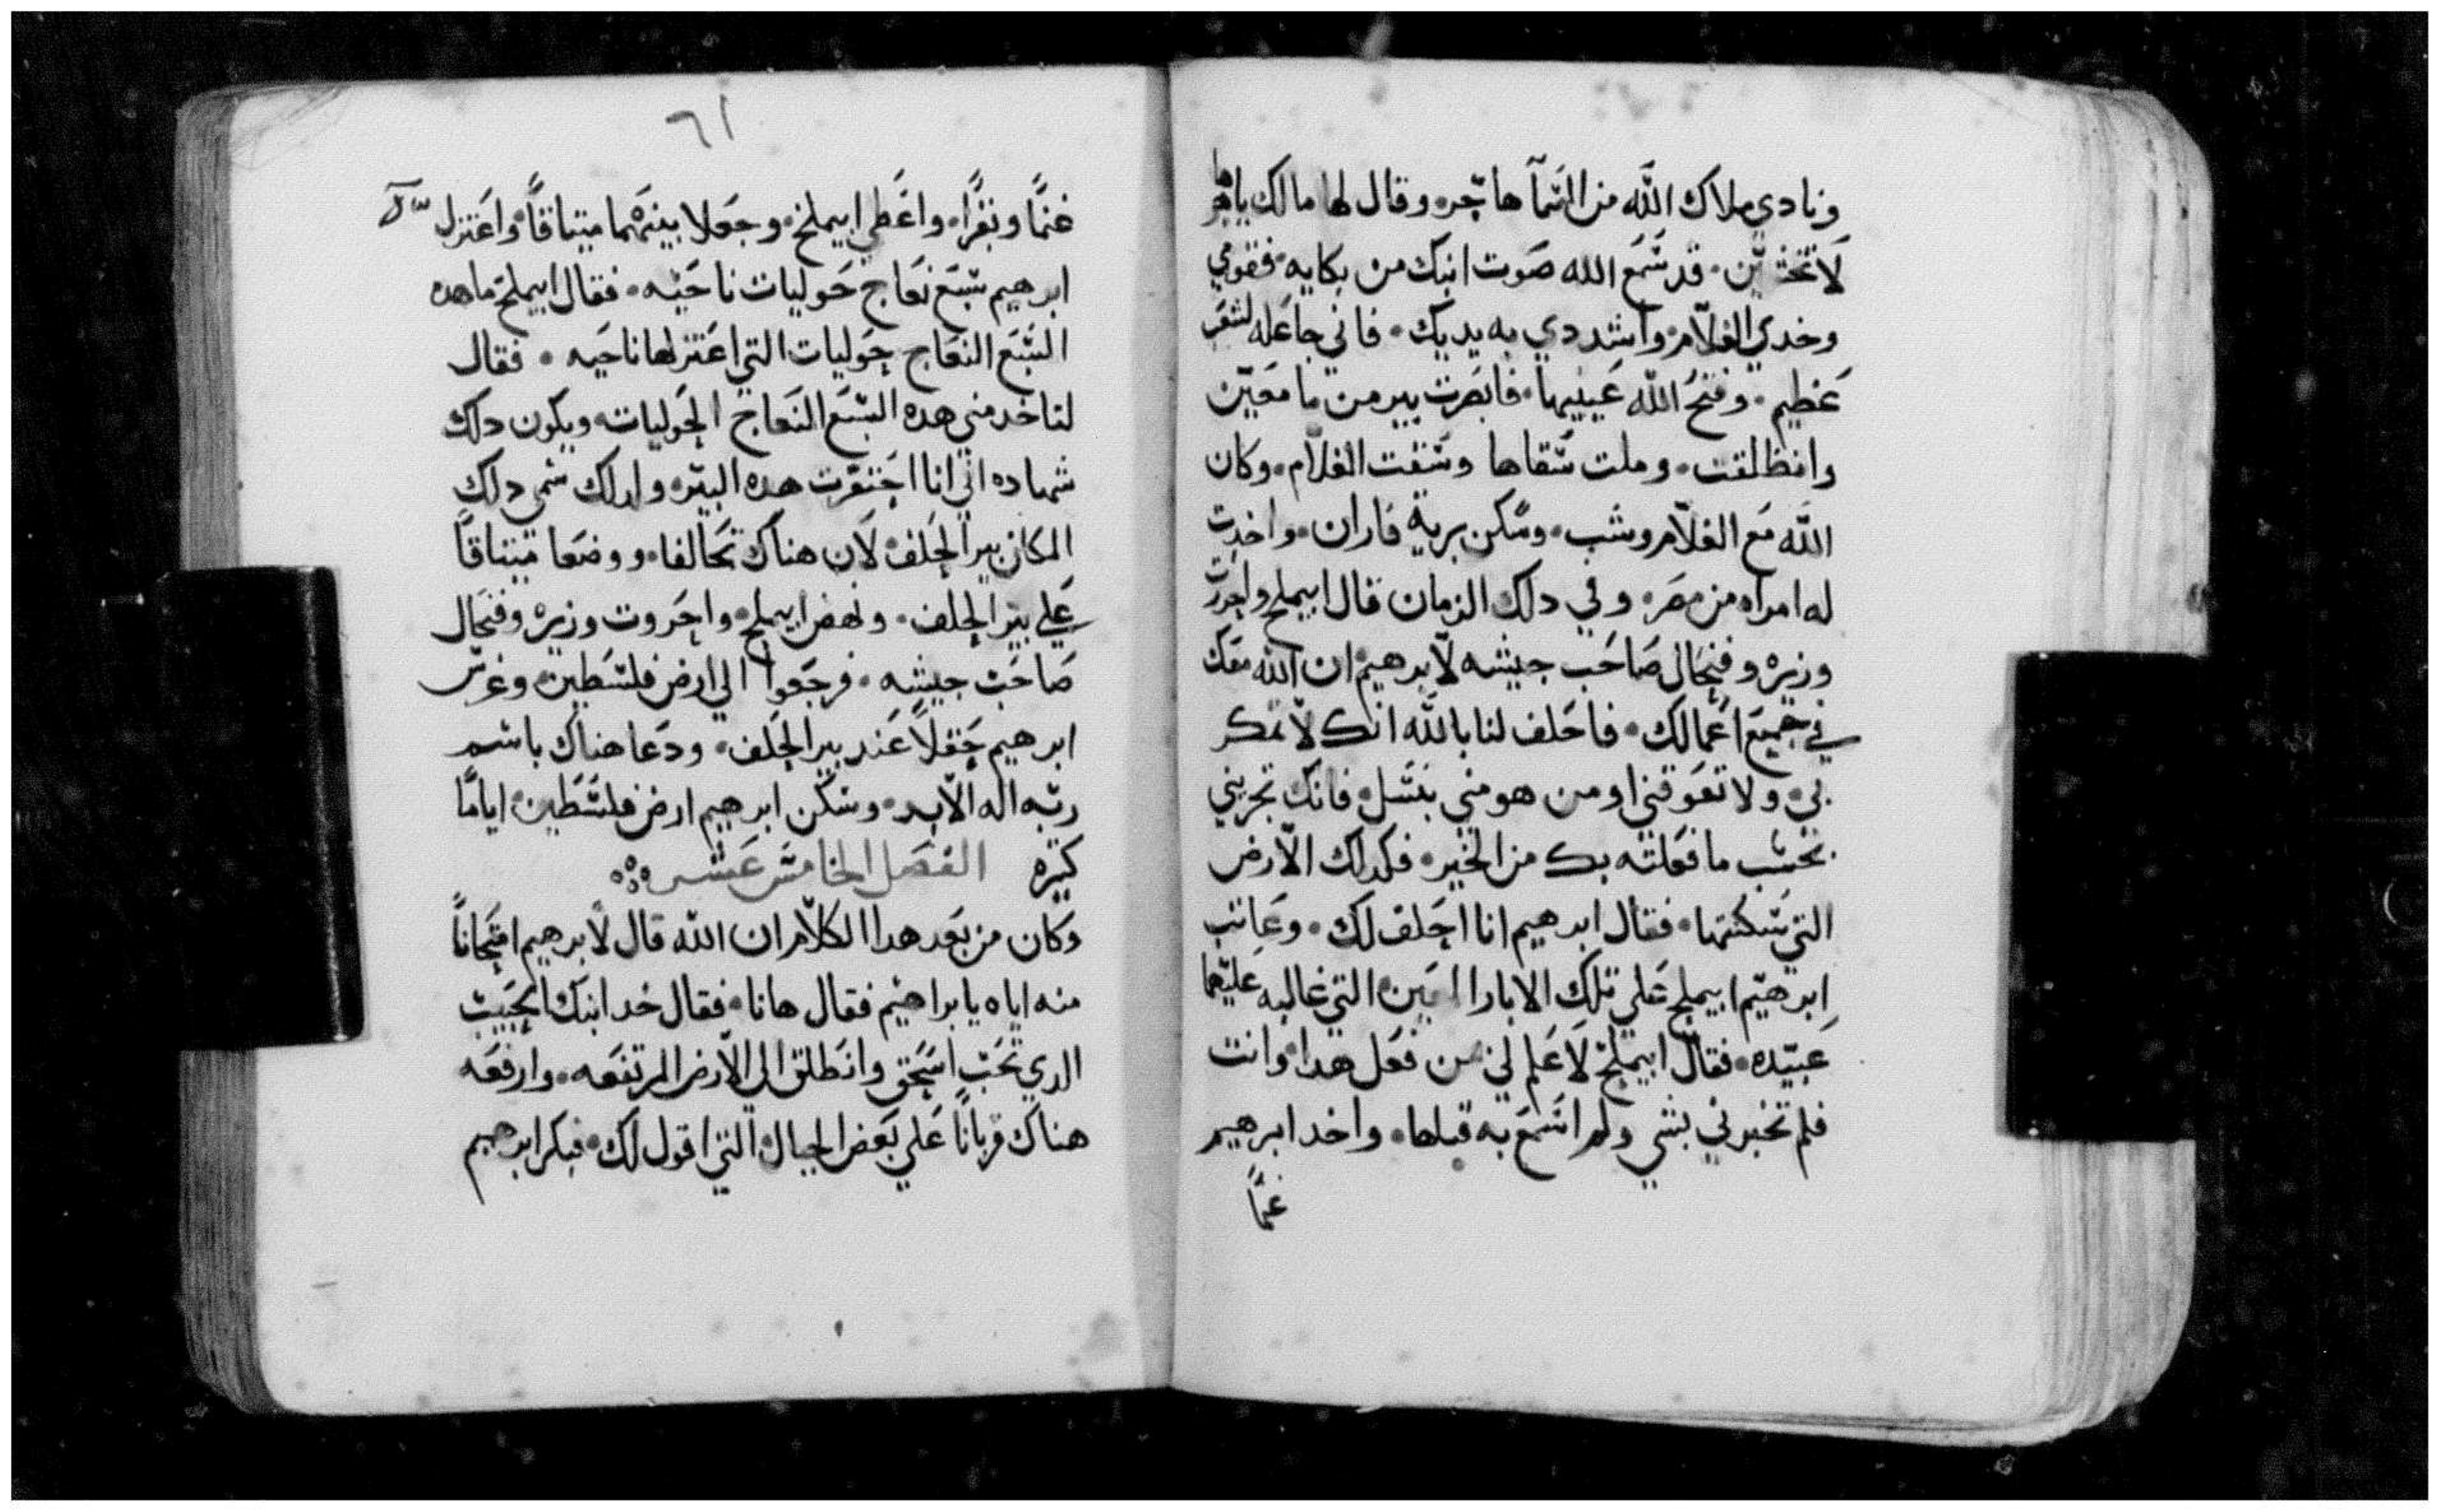 ونادي ملاك الله من السمآ هاجره وقال لها مالك ياهاجر
لا تخشين. قد سمع الله صوت ابنك من بكايه. فقومي
وخدي الغلام واشددي به يديك. فاني جاعله لشعب
عظيم. وفتح الله عينيها. فابصرت بير من ما معين
وانظلقت. وملت سقاها وسقت الغلام. وكان
الله مع الغلام وشب. وسكن برية فاران. واخدت
له امراه من مصر. وفي دلك الزمان قال ابيملخ واحروت
وزيره وفنحال صاحب جيشه لابرهيم ان الله معك
في جميع اعمالك. فاحلف لنا بالله انك لا تمكر
بي. ولا تعوقني او من هو مني بنسل. فانك تجريني
بحسب ما فعلته بك من الخير. فكدلك الارض
التي سكنتها. فقال ابرهيم انا احلف لك. وعاتب
ابرهيم ابيملخ علي تلك الابار العين التي غالبه عليها
عبيده. فقال ابيملخ لا علم لي من فعل هدا. وانت
فلم تخبرني بشي ولم اسمع به قبلها. واخد ابرهيم
غنمًا
٦١
غنمًا وبقرًا. واعطي ابيملخ. وجعلا بينهما ميتاقاً واعتزل
ابرهيم سبع نعاج حوليات ناحيه. فقال ابيملخ ما هده
السبع النعاج حوليات التي اعتزلها ناحيه. فقال
لتاخد مني هده السبع النعاج الحوليات ويكون دلك
شهاده اني انا احتفرت هده البير. ولدلك سمي دلك
المكان بير الحلف لان هناك تحالفا. ووضعا ميتاقاً
علي بير الحلف. ونهض ابيملخ واحروت وزيره وفنحال
صاحب جيشه. فرجعوا الي ارض فلسطين وغرس
ابرهيم حقلاً عند بير الحلف. ودعا هناك باسم
ربه اله الابد. وسكن ابرهيم ارض فلسطين اياماً
كتيره الفصل الخامس عشر
وكان من بعد هدا الكلام ان الله قال لابرهيم امتحاناً
منه اياه يا براهيم فقال هانا. فقال خد ابنك الحبيب
الدي تحب اسحق وانطلق الي الارض المرتفعه. وارفعه
هناك قرباناً علي بعض الجبال التي اقول لك. فبكر ابرهيم